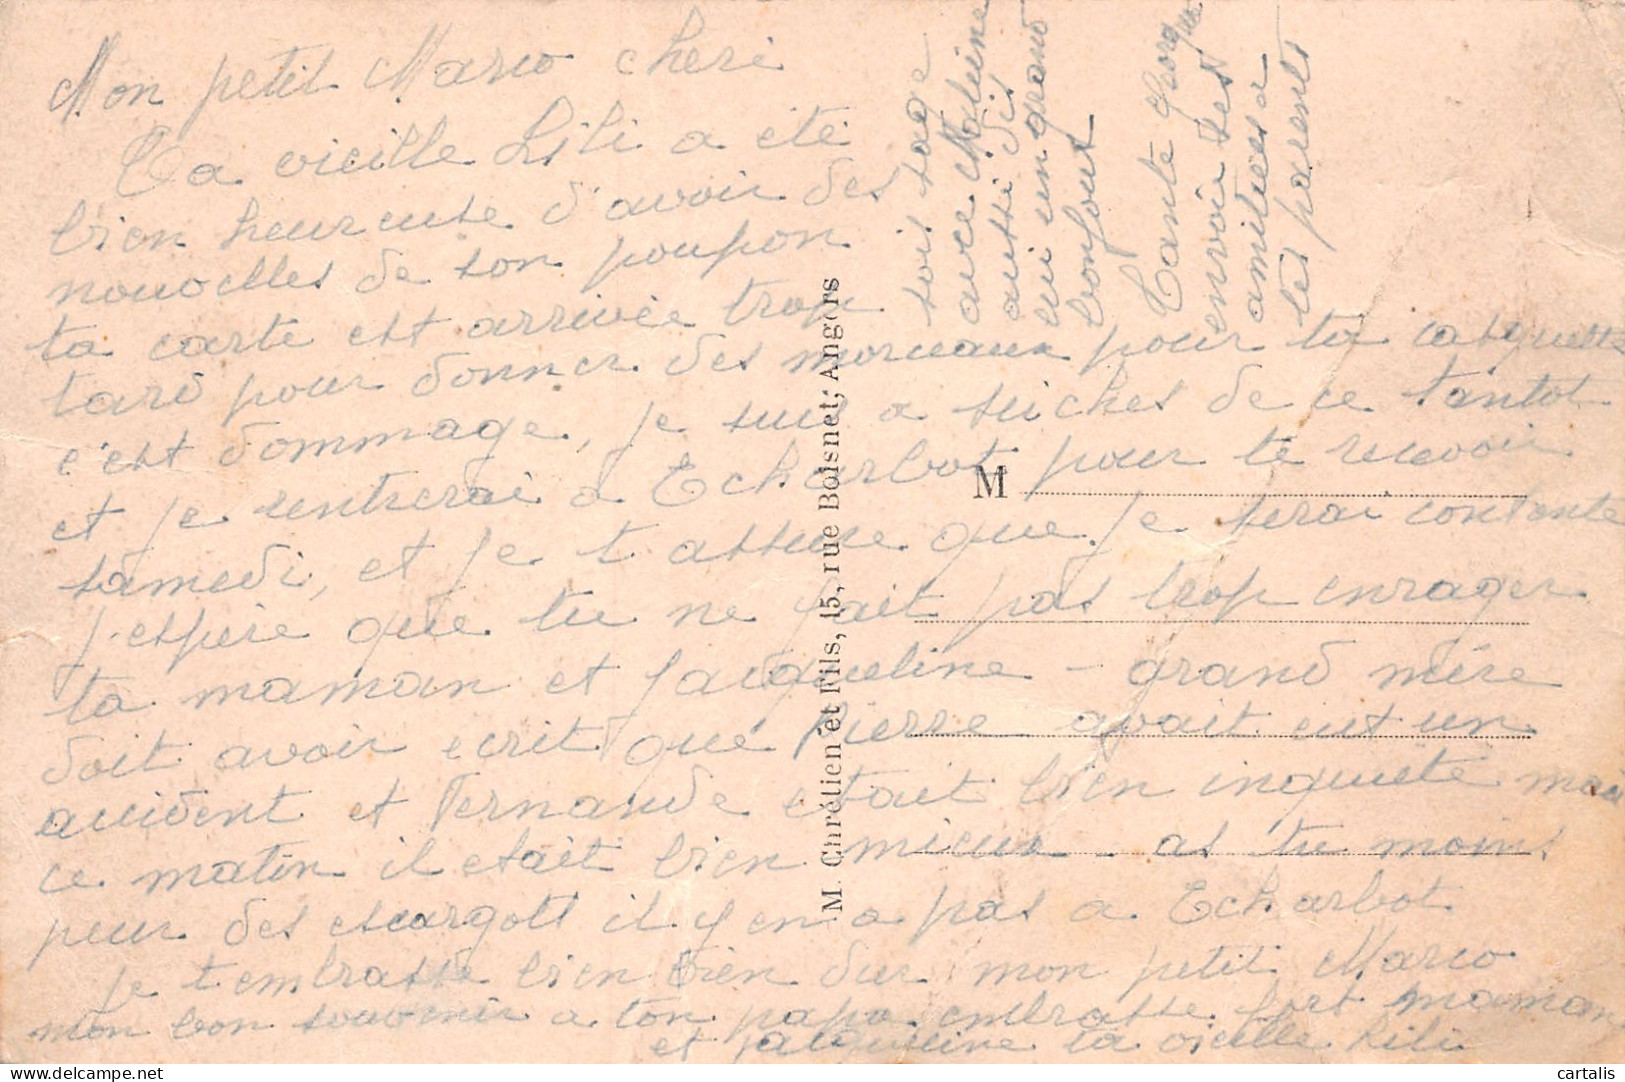 Mon petit Marco cheri
Ta vieille Lili a été
bien heureuse d'avoir des
nouvelles de son poupon
ta carte est arrivée trop
tard pour donner des morceaux pour ta casquette
c'est dommage, je suis a seiches de ce tantot
et je rentrerai a Echarbot pour te recevoir
samedi, et je t'assure que je serai contente
j'espère que tu ne fait pas trop enrager
ta maman et Jacqueline - grand mère
doit avoir ecrit que Pierre avait eut un
accident et Fernande etait bien inquiete mais
ce matin il etait bien mieux - as tu moins
peur des escargots il y en a pas a Echarbot
je t'embrasse bien bien dur mon petit Marco
mon bon souvenir a ton papa embrasse fort maman
et Jacqueline ta vieille Lili
soit sage
avec
aussi dit
lui un grand
bonjour
Tante
envoie ses
amitiees a
tes parents
M. Chrétien et Fils, 15, rue Boisnet, Angers
M
cartalis
delcampe.net